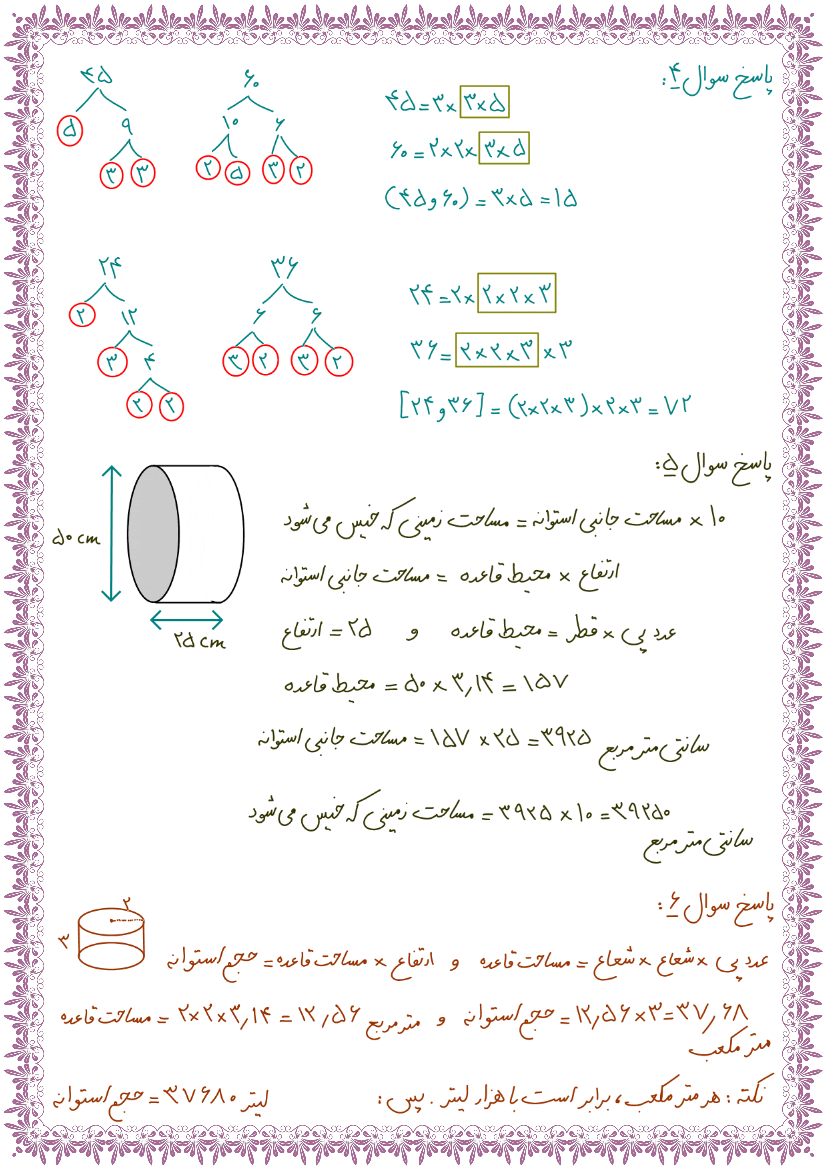 پاسخ سوال ۴:
۴۵ = ۳ × ۳ × ۵
۶۰ = ۲ × ۲ × ۳ × ۵
(۴۵ و ۶۰) = ۳ × ۵ = ۱۵
۴۵
۵ ۹
۳ ۳
۶۰
۱۰ ۶
۲ ۵ ۳ ۲
۲۴ = ۲ × ۲ × ۲ × ۳
۳۶ = ۲ × ۲ × ۳ × ۳
[۲۴ و ۳۶] = (۲ × ۲ × ۳) × ۲ × ۳ = ۷۲
۲۴
۲ ۱۲
۳ ۴
۲ ۲
۳۶
۶ ۶
۳ ۲ ۳ ۲
پاسخ سوال ۵:
۱۰ × مساحت جانبی استوانه = مساحت زمینی که خیس می شود
ارتفاع × محیط قاعده = مساحت جانبی استوانه
عدد پی × قطر = محیط قاعده و ۲۵ = ارتفاع
محیط قاعده = ۵۰ × ۳٫۱۴ = ۱۵۷
مساحت جانبی استوانه = ۱۵۷ × ۲۵ = ۳۹۲۵ سانتی متر مربع
مساحت زمینی که خیس می شود = ۳۹۲۵ × ۱۰ = ۳۹۲۵۰
سانتی متر مربع
۵۰ cm
۲۵ cm
پاسخ سوال ۶:
۲
۳
عدد پی × شعاع × شعاع = مساحت قاعده و ارتفاع × مساحت قاعده = حجم استوانه
مساحت قاعده = ۲ × ۲ × ۳٫۱۴ = ۱۲٫۵۶ متر مربع و حجم استوانه = ۱۲٫۵۶ × ۳ = ۳۷٫۶۸
متر مکعب
نکته: هر متر مکعب، برابر است با هزار لیتر. پس: حجم استوانه = ۳۷۶۸۰ لیتر